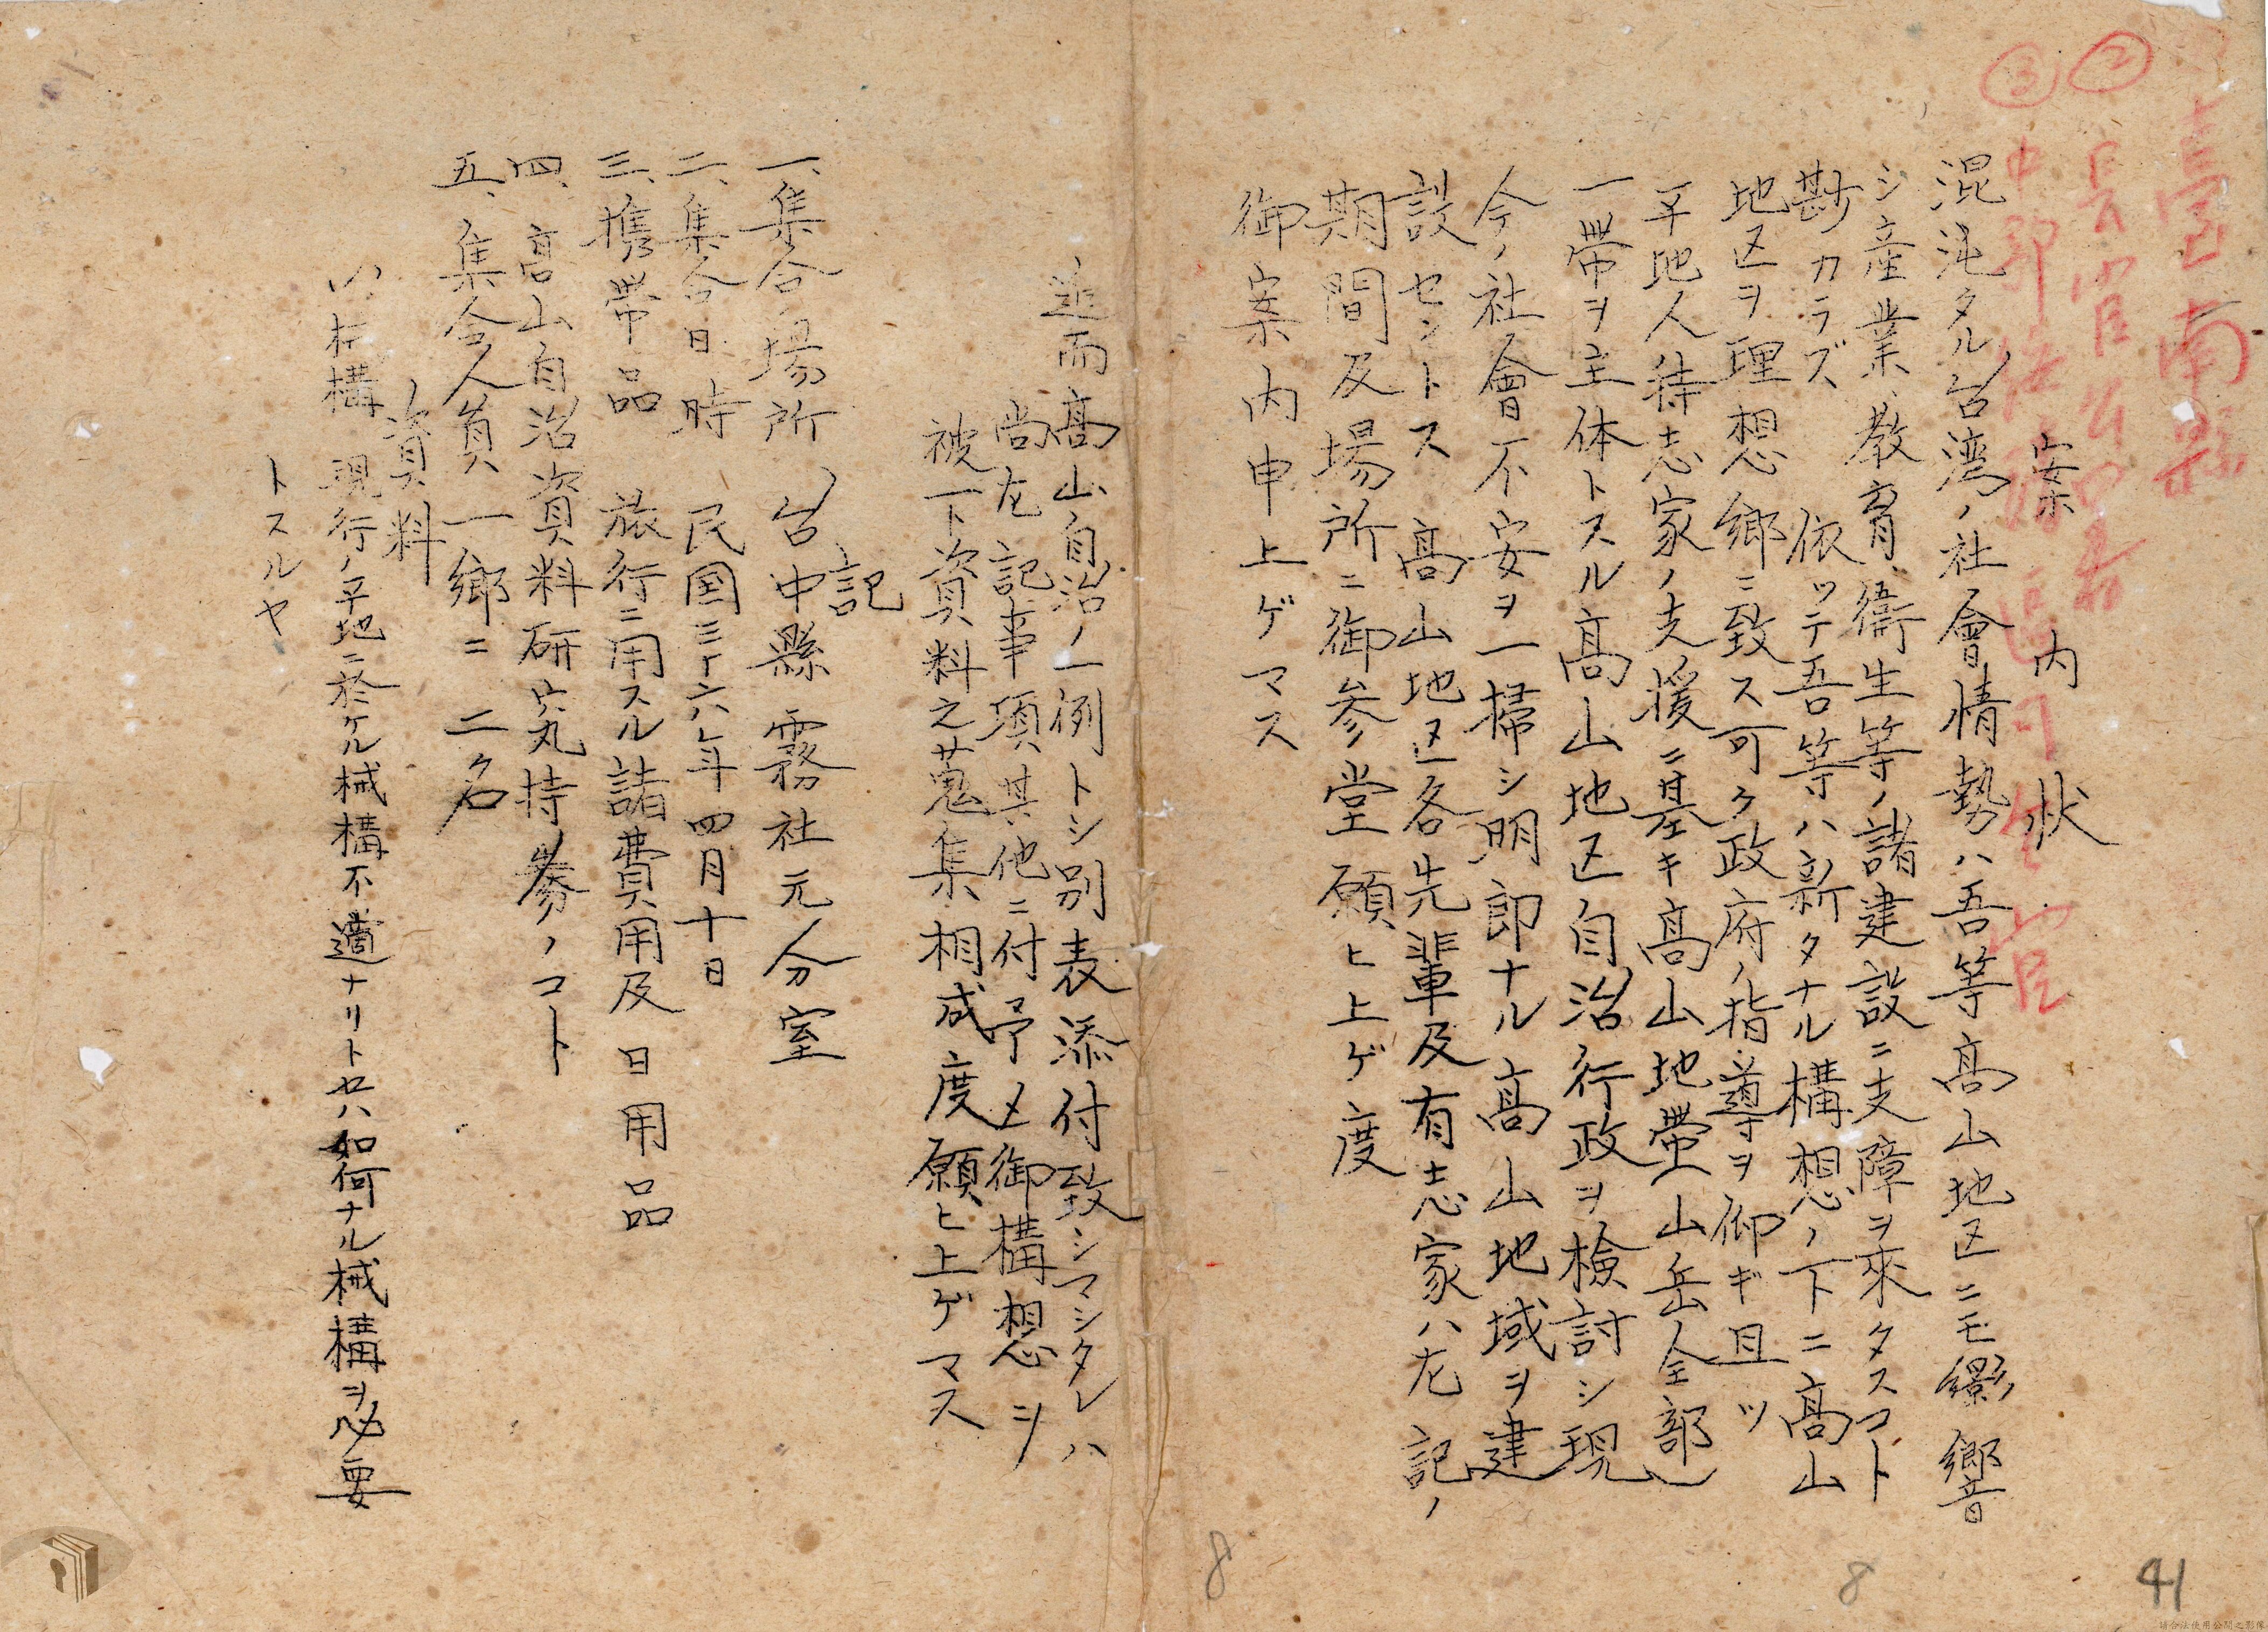 臺南縣
②長官公署
③中部綏靖區司令官
案内状
混沌タル台湾ノ社會情勢ハ吾等高山地区ニモ影響
シ産業、教育、衛生等ノ諸建設ニ支障ヲ來タスコト
尠カラズ 依ッテ吾等ハ新タナル構想ノ下ニ高山
地区ヲ理想郷ニ致ス可ク政府ノ指導ヲ仰ギ且ツ
平地人待志家ノ支援ニ基キ高山地帶山岳全部
一帶ヲ主体トスル高山地区自治行政ヲ檢討シ現
今ノ社會不安ヲ一掃シ明郎ナル高山地域ヲ建
設セントス 高山地区各先輩及有志家ハ左記ノ
期間及場所ニ御参堂願ヒ上ゲ度
御案内申上ゲマス
追而高山自治ノ一例トシ別表添付致シマシタレハ
尚左記事項其他ニ付予メ御構想ヲ
被下資料之蒐集相成度願ヒ上ゲマス
記
一、集合場所 台中縣霧社元分室
二、集合日時 民国三十六年四月十日
三、携帶品 旅行ニ用スル諸費用及日用品
四、高山自治資料研究持参ノコト
五、集合人員 一郷ニ二名
資料
い、机構 現行ノ平地ニ於ケル械構不適ナリトセハ如何ナル械構ヲ必要
トスルヤ
8
8
41
請合法使用公開之影像